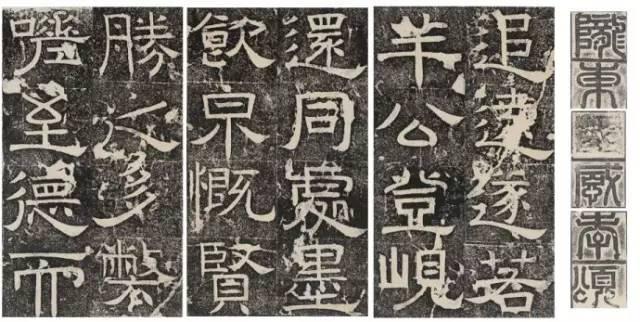 隴東王感孝頌
追遠遂若
羊公登峴
還同處墨
飲慨賢
勝多
嗟至德而